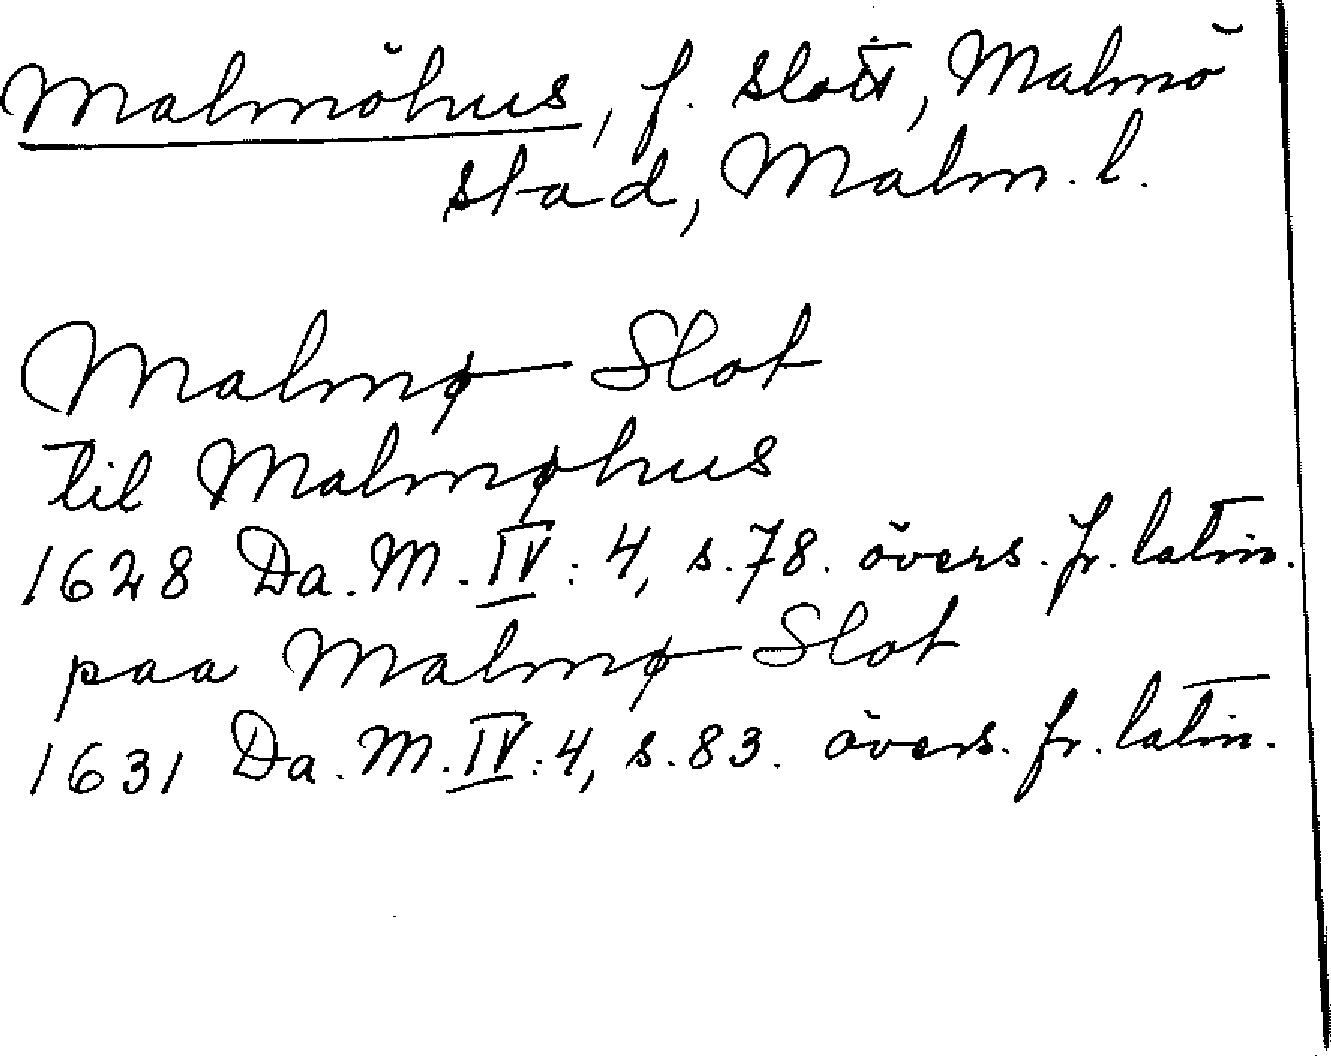 Malmöhus, f. slott, Malmö
stad, Malm. l.
Malmø Slot
til Malmøhus
1628 Da. M. IV: 4, s. 78. övers. fr. latin.
paa Malmø Slot
1631 Da. M. IV: 4, s. 83. övers. fr. latin.